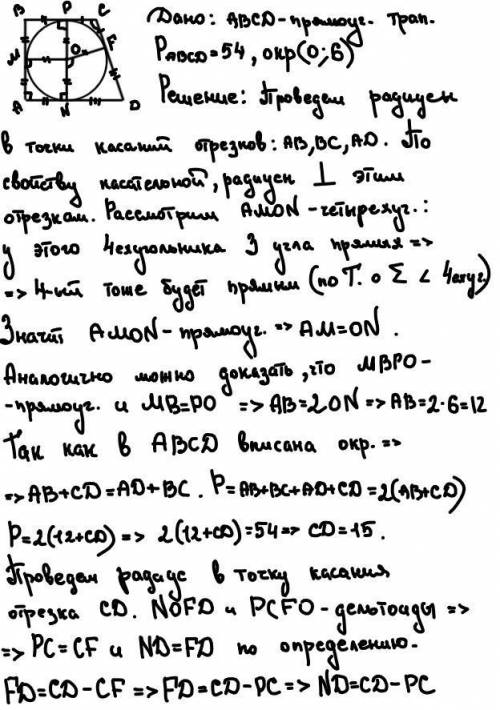 B P C
Дано: ABCD-прямоуг. трап.
F
M O
P ABCD=54, окр(O;6)
A N D
Решение: Проведем радиусы
в точки касаний отрезков: AB, BC, AD. По
свойству касательной, радиусы ⊥ этим
отрезкам. Рассмотрим AMON-четырехуг.:
у этого 4ехугольника 3 угла прямые =>
=> 4-ый тоже будет прямым (по Т. о Σ ∠ 4ехуг.)
Значит AMON-прямоуг. => AM=ON.
Аналогично можно доказать, что MBPO-
-прямоуг. и MB=PO => AB=2ON => AB=2·6=12
Так как в ABCD вписана окр. =>
=> AB+CD=AD+BC. P=AB+BC+AD+CD=2(AB+CD)
P=2(12+CD) => 2(12+CD)=54 => CD=15.
Проведем радиус в точку касания
отрезка CD. NOFD и PCFO-дельтоиды =>
=> PC=CF и ND=FD по определению.
FD=CD-CF => FD=CD-PC => ND=CD-PC